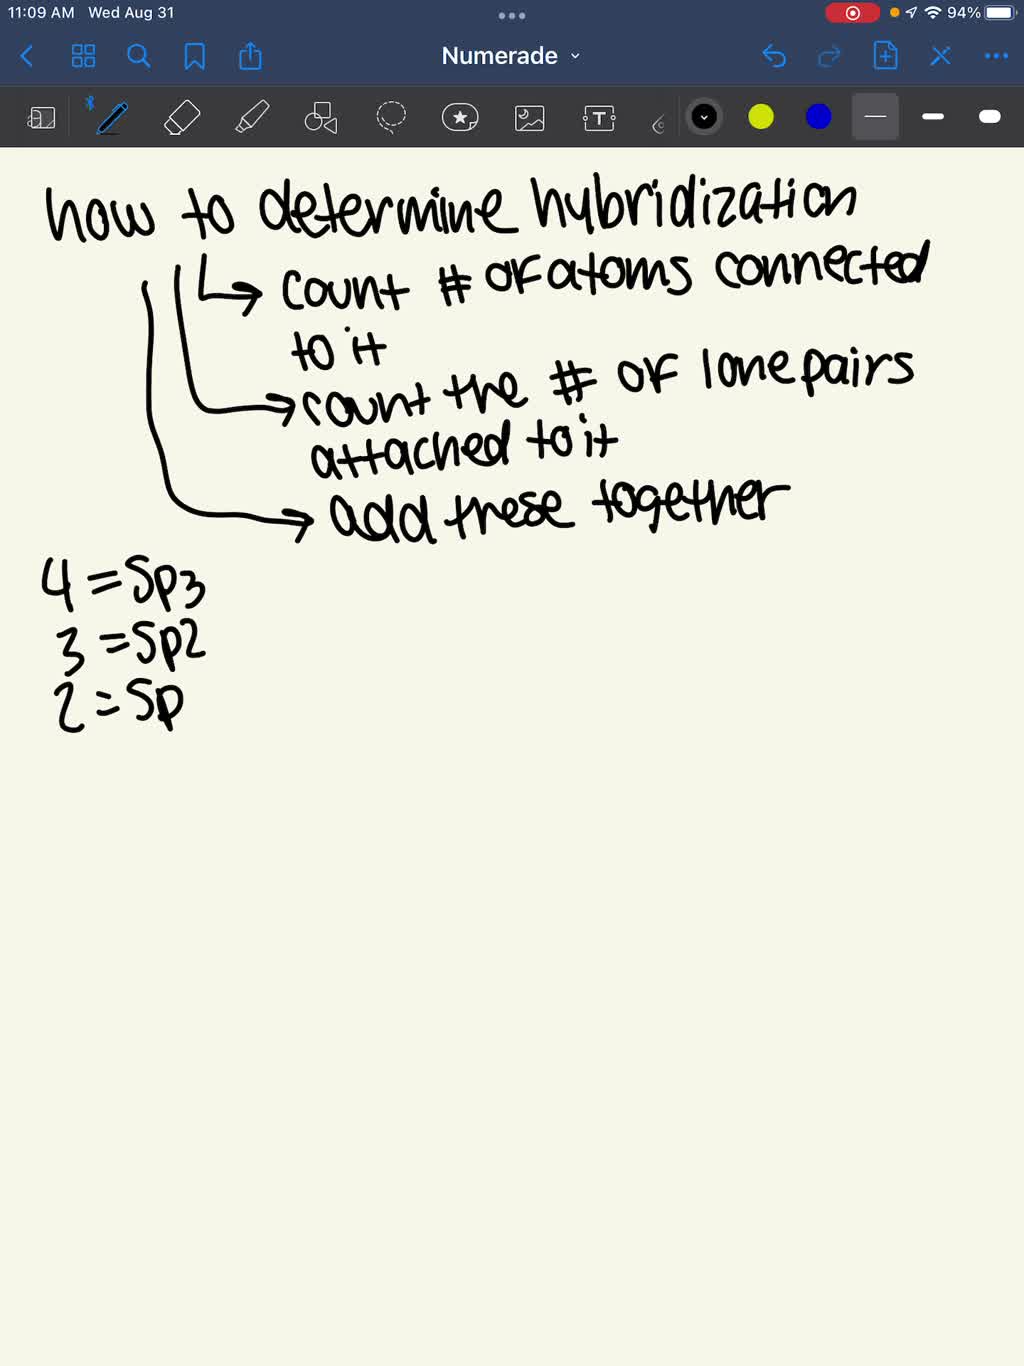 11:09 AM Wed Aug 31 94%
Numerade
how to determine hybridization
count # of atoms connected
to it
count the # of lone pairs
attached to it
add these together
4 = Sp3
3 = Sp2
2 = Sp